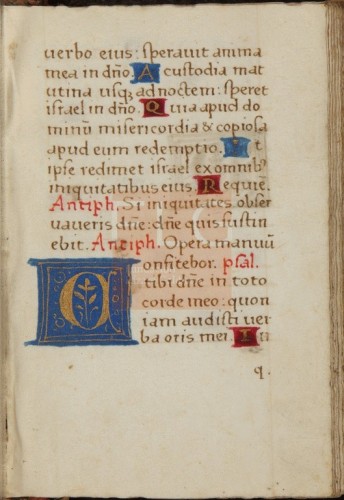 uerbo eius: sperauit anima
mea in dño. A custodia mat
utina usq; ad noctem: speret
israel in dño. Quia apud do
minū misericordia & copiosa
apud eum redemptio. Et
ipse redimet israel ex omnibꝰ
iniquitatibus eius. Requiē.
Antiph. Si iniquitates obser
uaueris dñe: dñe quis sustin
ebit. Antiph. Opera manuū
Confitebor. psal.
tibi dñe in toto
corde meo: quon
iam audisti uer
ba oris mei. In
q.